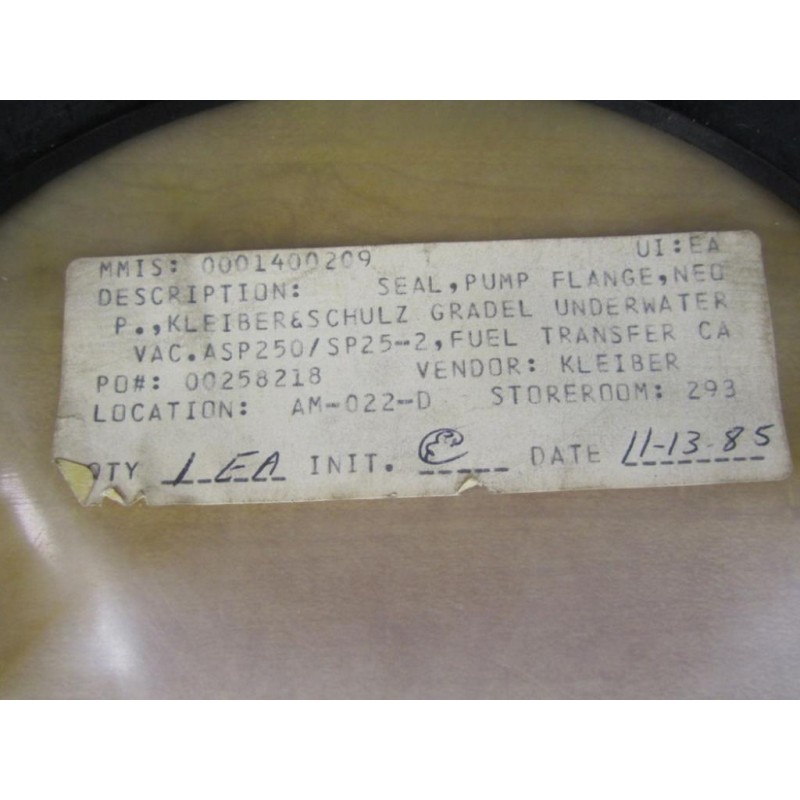 MMIS: 0001400209 UI:EA
DESCRIPTION: SEAL,PUMP FLANGE,NEO
P.,KLEIBER&SCHULZ GRADEL UNDERWATER
VAC.ASP250/SP25-2,FUEL TRANSFER CA
PO#: 00258218 VENDOR: KLEIBER
LOCATION: AM-022-D STOREROOM: 293
QTY 1 EA INIT. DATE 11-13-85